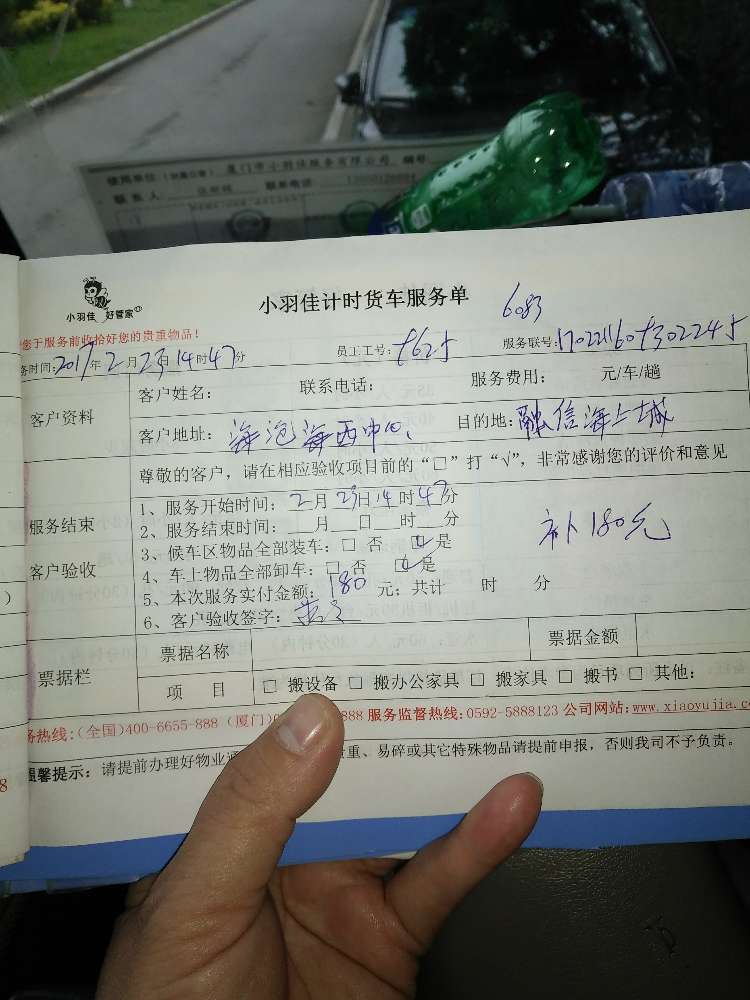 使用单位 厦门市小羽佳服务有限公司
联系人 联系电话:
小羽佳 好管家
小羽佳计时货车服务单
6083
您于服务前收拾好您的贵重物品!
务时间:2017年2月23日14时47分
员工工号:
服务联号:
客户资料
客户姓名: 联系电话: 服务费用: 元/车/趟
客户地址: 海沧海西中心 目的地:融信海上城
尊敬的客户,请在相应验收项目前的“□”打“√”,非常感谢您的评价和意见
服务结束
客户验收
1、服务开始时间:2月23日14时47分
2、服务结束时间: 月 日 时 分
3、候车区物品全部装车:□ 否 ☑是
4、车上物品全部卸车:□ 否 ☑是
5、本次服务实付金额:180元;共计 时 分
6、客户验收签字:
补180元
票据栏
票据名称 票据金额
项 目 □ 搬设备 □ 搬办公家具 □ 搬家具 □ 搬书 □ 其他:
务热线:(全国)400-6655-888 (厦门)0 888 服务监督热线:0592-5888123 公司网站:www.xiaoyujia.co
温馨提示:请提前办理好物业 重、易碎或其它特殊物品请提前申报,否则我司不予负责。